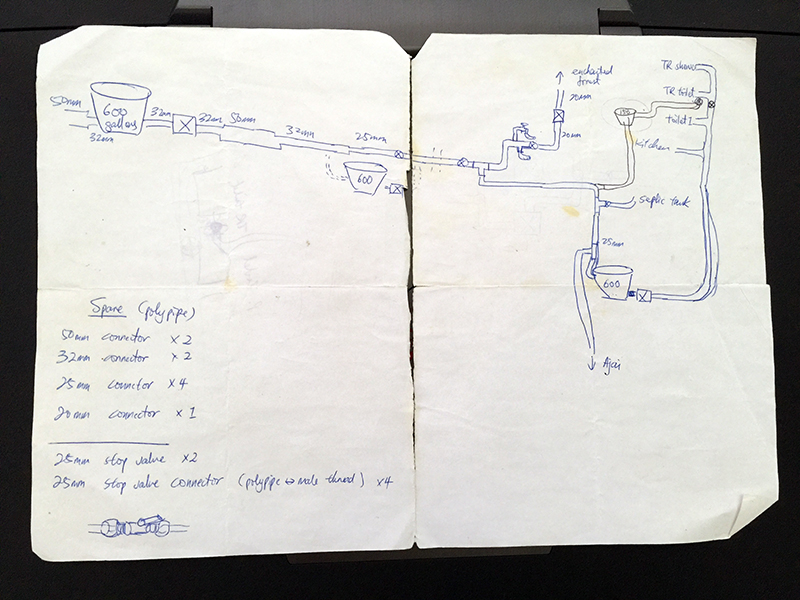 50mm
600
gallons
32mm
32mm
32mm
50mm
32mm
25mm
600
enchanted
forest
20mm
20mm
TR shower
TR toilet
toilet 1
kitchen
septic tank
25mm
600
Ajai
Spare (polypipe)
50mm connector x2
32mm connector x2
25mm connector x4
20mm connector x1
25mm stop valve x2
25mm stop valve connector (polypipe ↔ male thread) x4